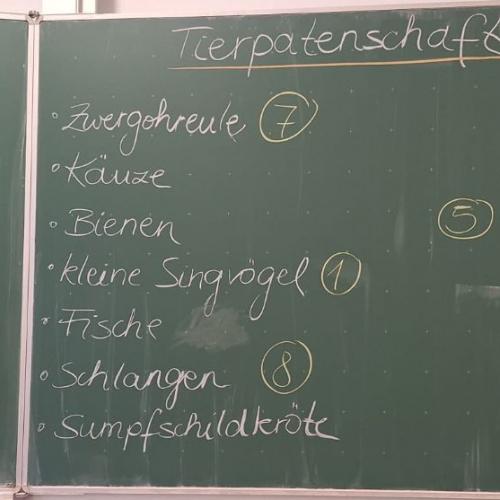 Tierpatenschaft
• Zwergohreule 7
• Käuze
• Bienen 5
• kleine Singvögel 1
• Fische
• Schlangen 8
• Sumpfschildkröte